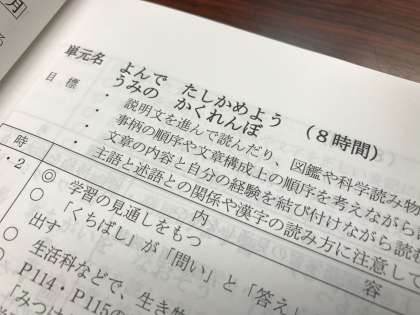 月
単元名 よんで たしかめよう
うみの かくれんぼ (8時間)
目標
・ 説明文を進んで読んだり、図鑑や科学読み物
・ 事柄の順序や文章構成上の順序を考えながら
・ 文章の内容と自分の経験を結び付けながら読む
・ 主語と述語との関係や漢字の読み方に注意して
時
内
容
・2
◎ 学習の見通しをもつ
○ 「くちばし」が「問い」と「答え
出す
○ 生活科などで、生き
○ P114・P115の
「みつけ